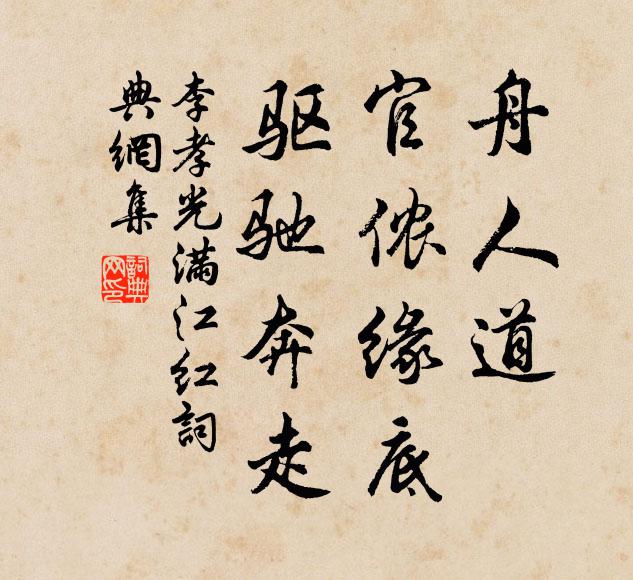 舟人道
官侬缘底
驱驰奔走
李孝光满江红詞
典網集
詞典网印